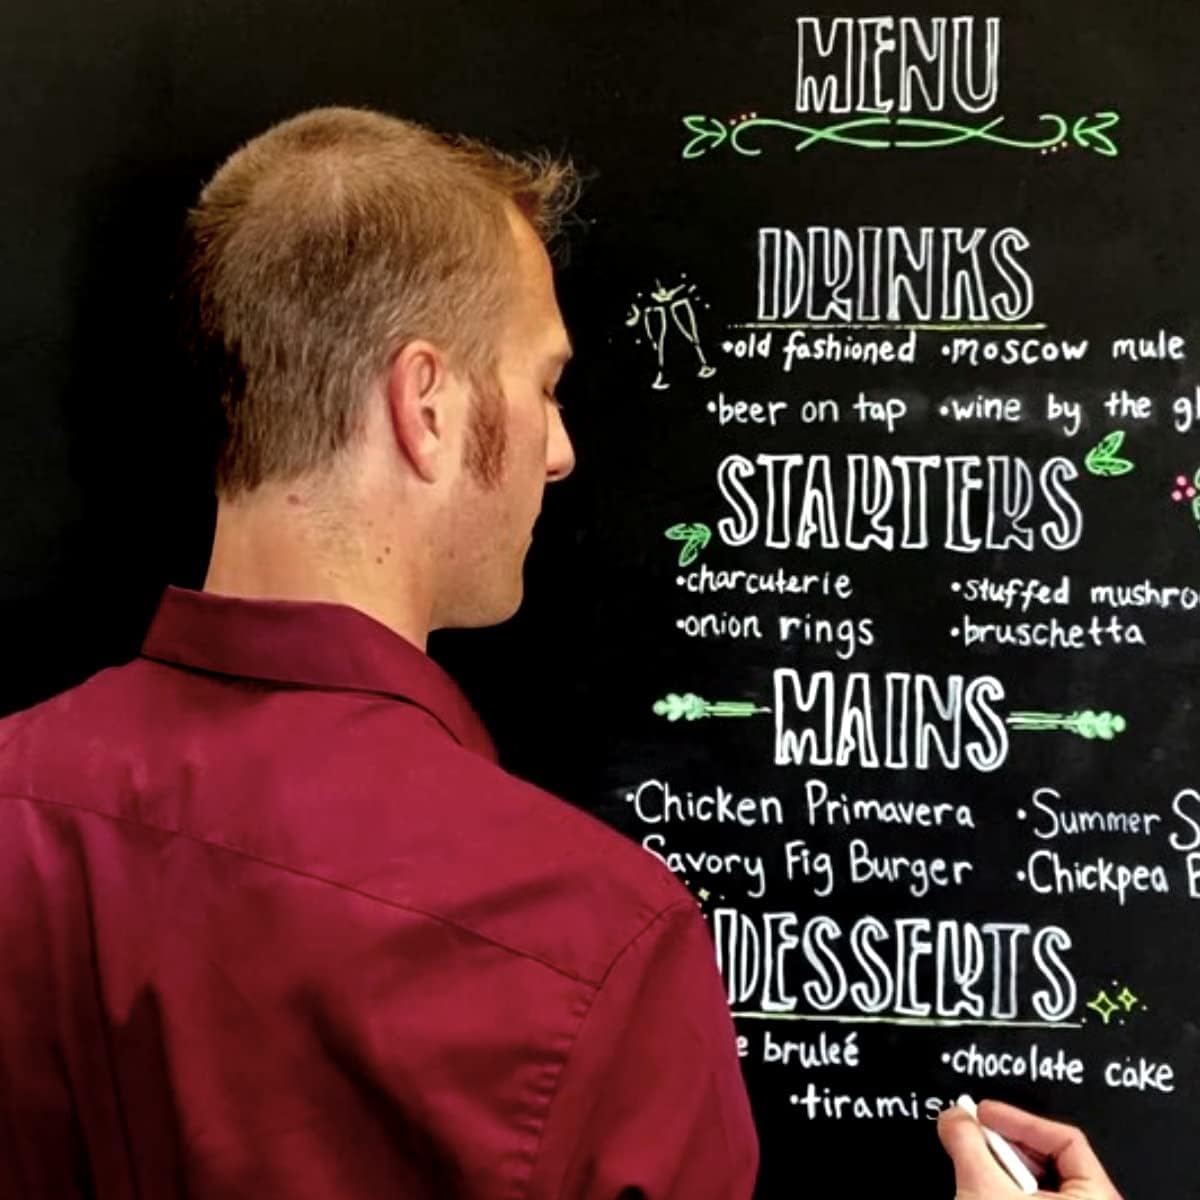 MENU
DRINKS
•old fashioned •moscow mule
•beer on tap •wine by the gl
STARTERS
•charcuterie •stuffed mushro
•onion rings •bruschetta
MAINS
•Chicken Primavera •Summer S
Savory Fig Burger •Chickpea
DESSERTS
e bruleé •chocolate cake
•tiramis